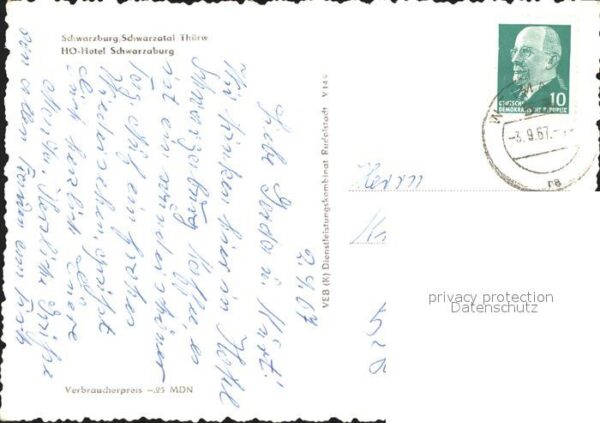 Schwarzburg, Schwarzatal Thürw
HO-Hotel Schwarzaburg
2.9.67
Liebe Gerda u. Kurt!
Wir trinken hier im Hotel
Schwarzaburg Kaffee, es
ist ein wunderschöner
Tag. Auf ein frohes
Wiedersehen, grüßt
Euch herzlich Eure
Herzliche Grüße
von allen
VEB (K) Dienstleistungskombinat Rudolstadt V 14 6
DEUTSCHE
DEMOKRATISCHE REPUBLIK
10
-3.9.67.
na
Herrn
privacy protection
Datenschutz
Verbraucherpreis -,25 MDN